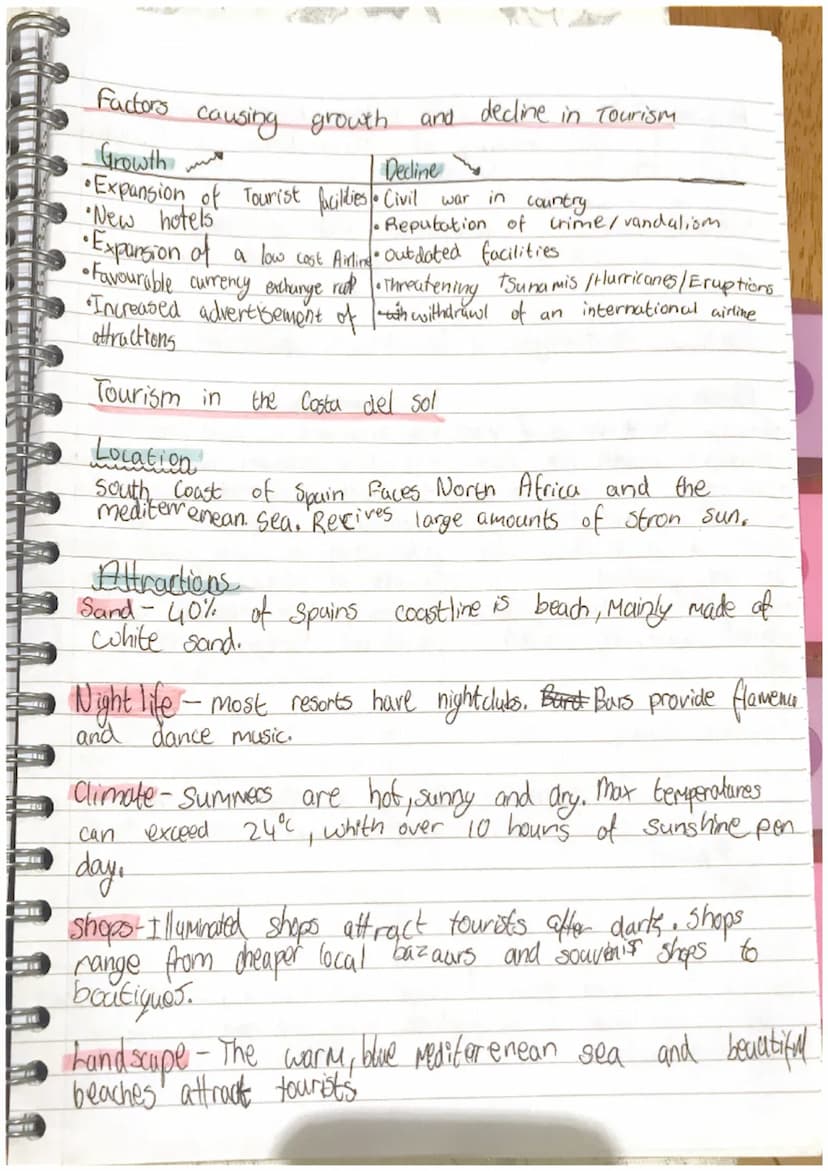 Factors causing growth and decline in Tourism
Growth
• Expansion of Tourist facilities
• New hotels
• Expansion of a low cost Airline
• Favourable currency exchange
• Increased advertisement of
attractions
Decline
• Civil war in country
• Reputation of crime/vandalism
• Outdated facilities
• Threatening Tsunamis/Hurricanes/Eruptions
withdrawl of an international airline
Tourism in the Costa del Sol
Location
South Coast of Spain Faces North Africa and the
mediterrenean. Sea. Recives large amounts of Stron Sun.
Attractions
Sand - 40% of Spains coastline is beach, Mainly made of
white sand.
Night life - most resorts have nightclubs. Bars provide flamenco
and dance music.
Climate - Summers are hot, sunny and dry. Max temperatures
can exceed 24°c, whith over 10 hours of sunshine per
day.
Shops - Illuminated shops attract tourists after dark. Shops
range from cheaper local bazaars and souvenir shops to
boutiques.
Landscape - The warm, blue Mediterenean sea and beautiful
beaches attract tourists